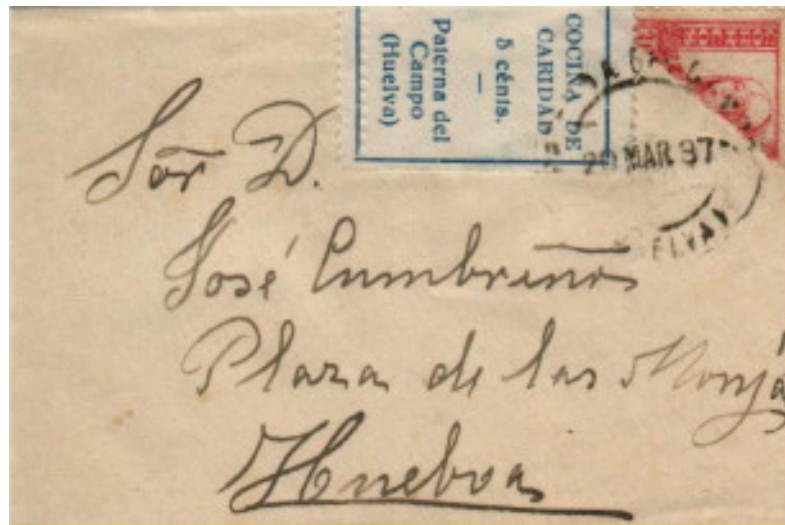 COCINA DE
CARIDAD
5 cénts.
—
Paterna del
Campo
(Huelva)
CORREOS
20 MAR 37
Sor D.
José Cumbreños
Plaza de las Monja
Huelva